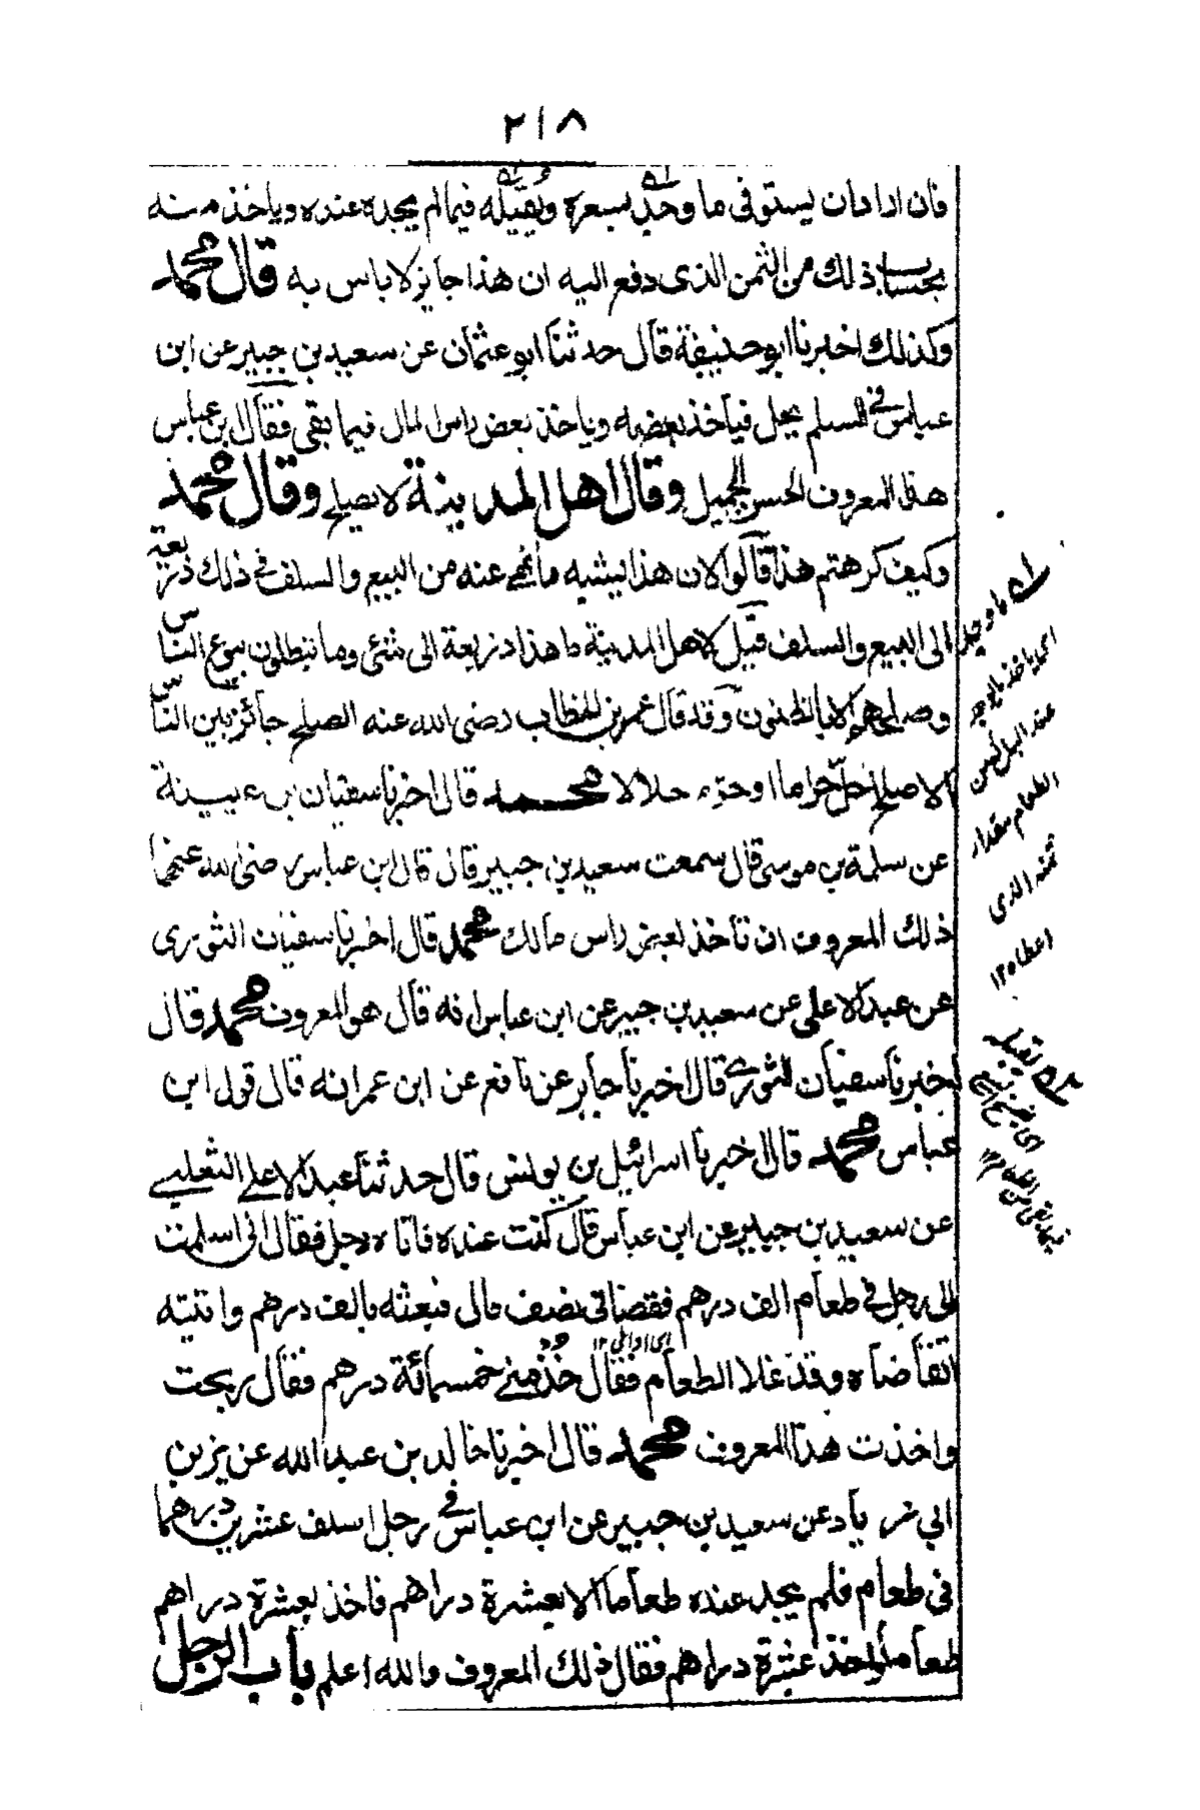 ٢١٨
فان اراد ان يستوفى ما وجد بسعره ويقيله فيما لم يجده عنده وياخذ منه
بحساب ذلك من الثمن الذى دفع اليه ان هذا جايز لا باس به قال محمد
وكذلك اخبرنا ابو حنيفة قال حدثنا ابو عثمان عن سعيد بن جبير عن ابن
عباس فى السلم يحل فيأخذ بعضه وياخذ بعض راس المال فيما بقى فقال ابن عباس
هذا المعروف الحسن الجميل وقال اهل المدينة لا يصلح وقال محمد
وكيف كرهتم هذا قالوا لان هذا يشبه ما نهى عنه من البيع والسلف فى ذلك ذريعة
الى البيع والسلف قيل لاهل المدينة ما هذا ذريعة الى شئ وما تبطلون بيوع الناس
وصلحهم الا بالظنون وقد قال عمر بن الخطاب رضى الله عنه الصلح جائز بين الناس
الا صلح احل حراما او حرم حلالا محمد قال اخبرنا سفيان بن عيينة
عن سلمة بن موسى قال سمعت سعيد بن جبير قال قال ابن عباس رضى الله عنهما
ذلك المعروف ان تأخذ بعض راس مالك محمد قال اخبرنا سفيان الثورى
عن عبد الاعلى عن سعيد بن جبير عن ابن عباس انه قال هو المعروف محمد قال
اخبرنا سفيان الثورى قال اخبرنا جابر عن نافع عن ابن عمر انه قال قول ابن
عباس محمد قال اخبرنا اسرائيل بن يونس قال حدثنا عبد الاعلى الثعلبى
عن سعيد بن جبير عن ابن عباس قال كنت عنده فاتاه رجل فقال انى اسلمت
الى رجل فى طعام الف درهم فقضانى نصف مالى فبعثه بالف درهم واتيته
اتقاضاه وقد غلا الطعام فقال خذ منى خمسمائة درهم فقال ربحت
واخذت هذا المعروف محمد قال اخبرنا خالد بن عبد الله عن يزيد بن
ابى زياد عن سعيد بن جبير عن ابن عباس فى رجل اسلف عشرين درهما
فى طعام فلم يجد عنده طعاما الا بعشرة دراهم فاخذ بعشرة دراهم
طعاما واخذ عشرة دراهم فقال ذلك المعروف والله اعلم باب الرجل
ما وجد
اى ياخذ ما وجد
عند البائع من
الطعام بمقدار
ثمنه الذى
اعطاه ١٢
يقيله
اى يفسخ البيع